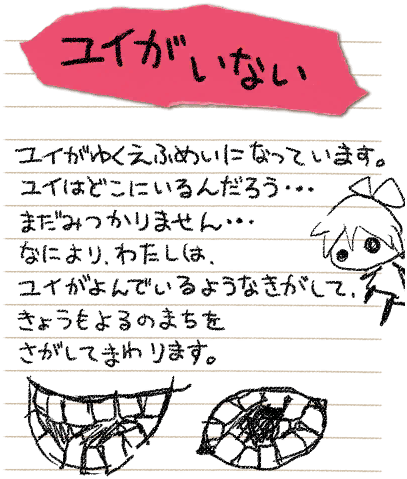 ユイがいない
ユイがゆくえふめいになっています。
ユイはどこにいるんだろう・・・
まだみつかりません・・・
なにより、わたしは、
ユイがよんでいるようなきがして、
きょうもよるのまちを
さがしてまわります。